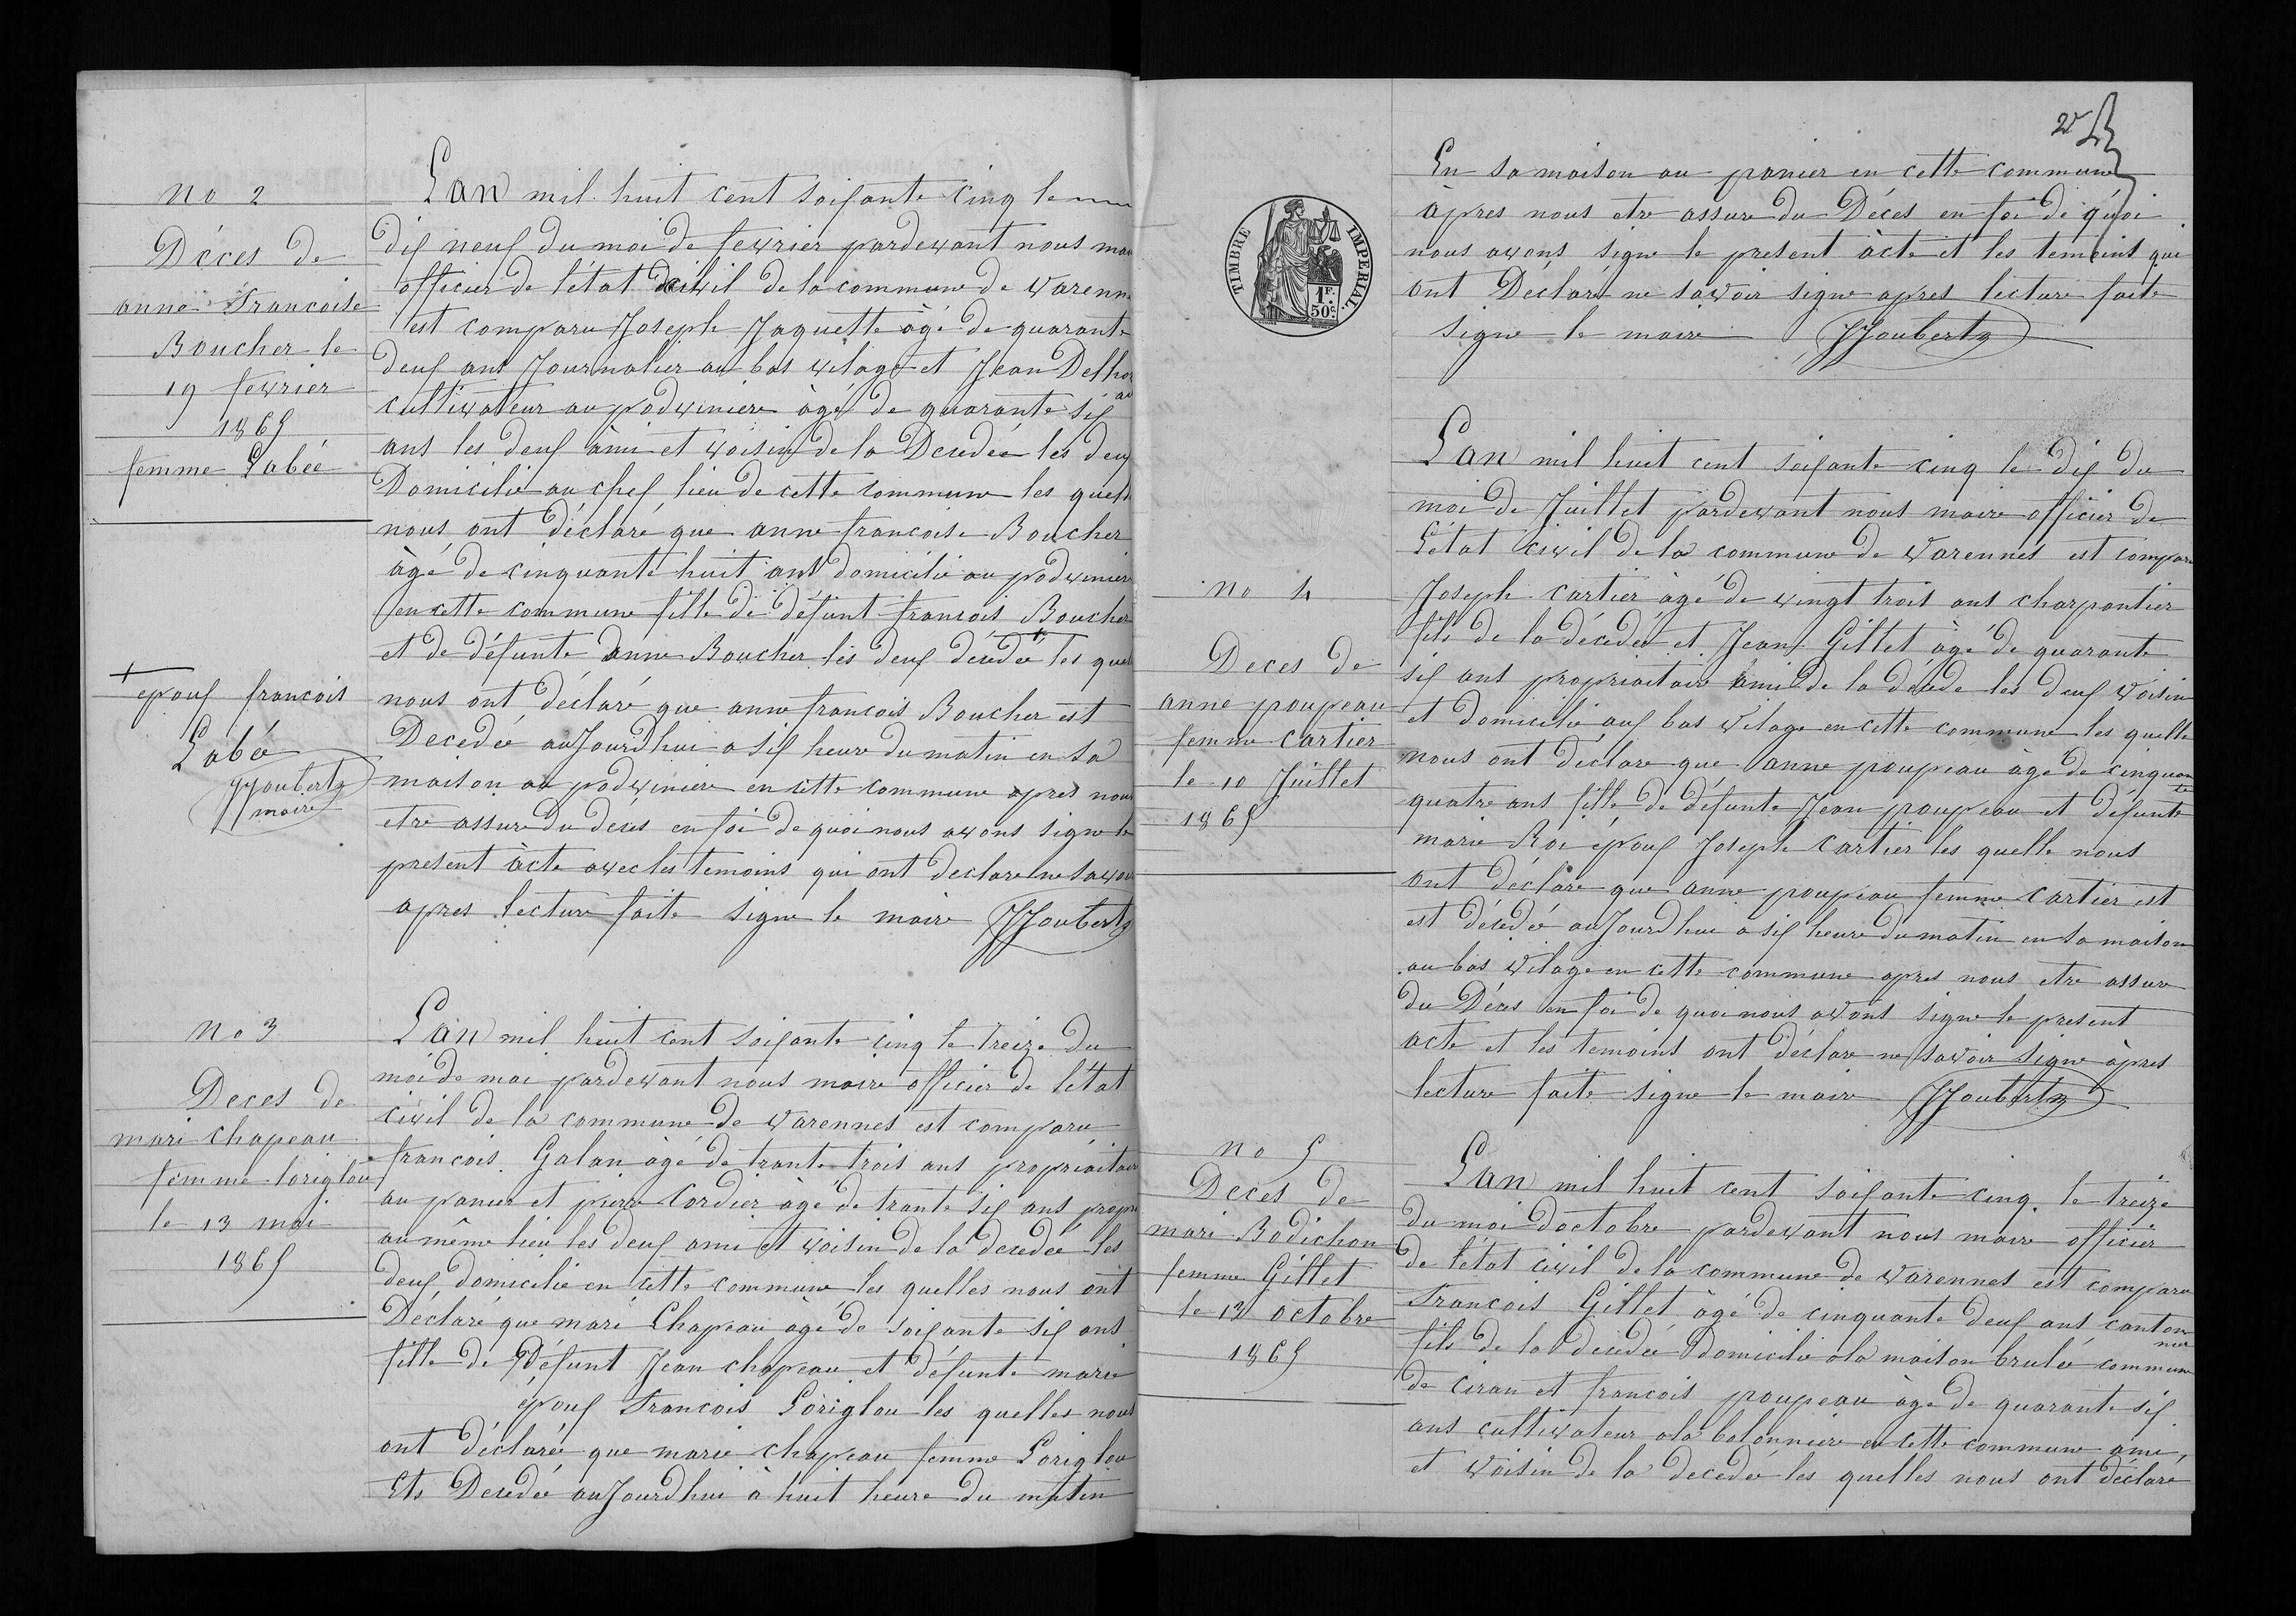 no 2
Déces de
anne Francoise
Boucher le
19 fevrier
1865
femme Labée
Lan mil huit cent soixante cinq le
dix neuf du moi de fevrier pardevant nous mai
officier de létat civil de la commune de varenn
est comparu Joseph Jaquette âgé de quarante
deux ans Journalier au bas vilage et Jean Delho
cultivateur au podvinière âgé de quarante six
ans les deux âmi et voisin de la Decedée les deux
Domicilié au chef lieu de cette commune les quell
nous ont déclaré que anne francoise Boucher
âgé de cinquante huit ans domicilié au podvinier
en cette commune fille de défunt francois Boucher
et de défunte anne Boucher les deux décedée + les quel
nous ont déclaré que anne francois Boucher est
Decedée aujourdhui a six heure du matin en sa
maison au podvinière en cette commune apres nous
etre assure du deces en foi de quoi nous avons signe le
present àcte avec les temoins qui ont declare ne savoi
apres lecture faite signe le maire JJoubert
+ epoux francois
Labé
JJoubert
maire
no 3
Deces de
mari chapeau
femme loriglou
le 13 mai
1865
Lan mil huit cent soixante cinq le treize du
moi de mai pardevant nous maire officier de létat
civil de la commune de varennes est comparu
francois Galan âgé de trante trois ans propriaitaire
au panier et pierre Cordier âgé de trante six ans propr
au même lieu les deux ami et voisin de la decedée les
deux domicilié en cette commune les quelles nous ont
Déclaré que mari Chapeau âgé de soixante six ans
fille de Défunt Jean chapeau et défunte marie
époux Francois Loriglou les quelles nous
ont déclarée que marie chapeau femme Loriglou
Ets Decedée aujourdhui à huit heure du matin
2e
En sa maison au panier en cette commune
àpres nous etre assure du Déces en foi de quoi
nous avons signe le present àcte et les temoint qui
ont Déclaré ne savoir signe apres lecture faite
signe le maire JJoubert
TIMBRE IMPERIAL
1F.
50c.
no 4
Deces de
anne poupeau
femme Cartier
le 10 Juillet
1865
Lan mil huit cent soixante cinq le dix du
moi de Juillet pardevant nous maire officier de
Létat civil de la commune de Varennes est compar
Joseph cartier âgé de vingt trois ans charpantier
fils de la décedée et Jean Gillet âgé de quarante
six ans propriaitaire ami de la décede les deux voisin
et domicilié aux bas vilage en cette commune les quelle
nous ont declare que anne poupeau âgé de cinquan
te
quatre ans fille de défunte Jean poupeau et défunte
marie Roi époux Joseph Cartier les quelle nous
ont déclare que anne poupeau femme cartier est
est décedée aujourdhui a six heure du matin en sa maison
au bas vilage en cette commune apres nous etre assure
du Déces en foi de quoi nous avons signe le present
acte et les temoins ont déclare ne savoir signe àpres
lecture faite signe le maire JJoubert
no 5
Deces de
mari Bodichon
femme Gillet
le 13 octobre
1865
Lan mil huit cent soixante cinq le treize
du moi doctobre pardevant nous maire officier
de létat civil de la commune de varennes est comparu
Francois Gillet âgé de cinquante deux ans canton
nier
fils de la decedée Domicilié a la maison brulée commune
de ciran et francois poupeau àge de quarante six
ans cultivateur a la balonnière en cette commune ami
et voisin de la decedé les quelles nous ont déclaré